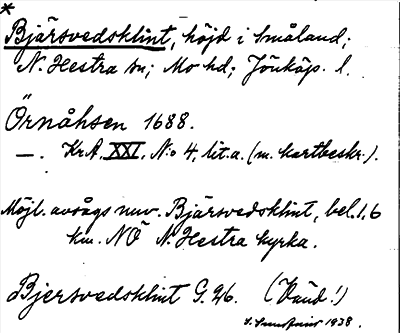 *
Bjärsvedsklint, höjd i Småland;
N. Hestra sn; Mo hd; Jönköp. l.
Örnåhsen 1688.
—. KrA. XXI. N:o 4, lit. a. (m. kartbeskr.).
Möjl. avsågs nuv. Bjärsvedsklint, bel. 1,6
km. NÖ N. Hestra kyrka.
Bjersvedsklint G. 26. (Vaud!)
1938.